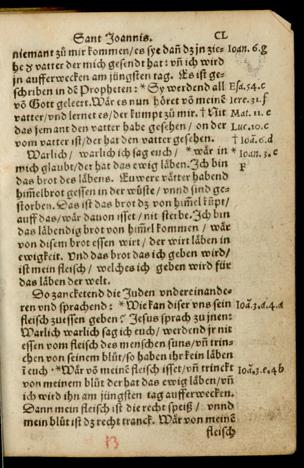 Sant Joannis. CL
niemant zů mir kommen/ es sye dañ dz in zie- Ioan. 6.g
he dʼ vatter der mich gesendt hat: vñ ich wird
in aufferwecken am jüngsten tag. Es ist ge-
schriben in dē Propheten: * Sy werdend all Esa. 54.c
vō Gott geleert. Wär es nun höret vō meinē Iere. 31.f
vatter/ vnd lernet es/ der kumpt zů mir. † Nit Mat. 11.c
das jemant den vatter habe gesehen/ on der Luc. 10.c
vom vatter ist/ der hat den vatter gesehen. † Ioā. 6.d
Warlich/ warlich ich sag euch/ * wär in * Ioan. 3.c
mich glaubt/ der hat das ewig läben. Ich bin F
das brot des läbens. Euwere vätter habend
himelbrot gessen in der wüste/ vnnd sind ge-
storben. Das ist das brot dz von himel kūpt/
auff das/ wär dauon isset/ nit sterbe. Ich bin
das läbendig brot von himel kommen/ wär
von disem brot essen wirt/ der wirt läben in
ewigkeit. Vnd das brot das ich geben wird/
ist mein fleisch/ welches ich geben wird für
das läben der welt.
Do zancketend die Juden vndereinande-
ren vnd sprachend: * Wie kan diser vns sein Ioā. 3.d.4.d
fleisch zuessen geben? Jesus sprach zu jnen:
Warlich warlich sag ich euch/ werdend jr nit
essen vom fleisch des menschen suns/ vñ trin-
cken von seinem blůt/ so haben ihr kein läben
ī euch. * Wär vō meinē fleisch isset/ vñ trinckt Ioā. 3.e.4.b
von meinem blůt der hat das ewig läben/ vñ
ich wird ihn am jüngsten tag aufferwecken.
Dann mein fleisch ist die recht speiß/ vnnd
mein blůt ist dz recht tranck. Wär von meinē
fleisch
13